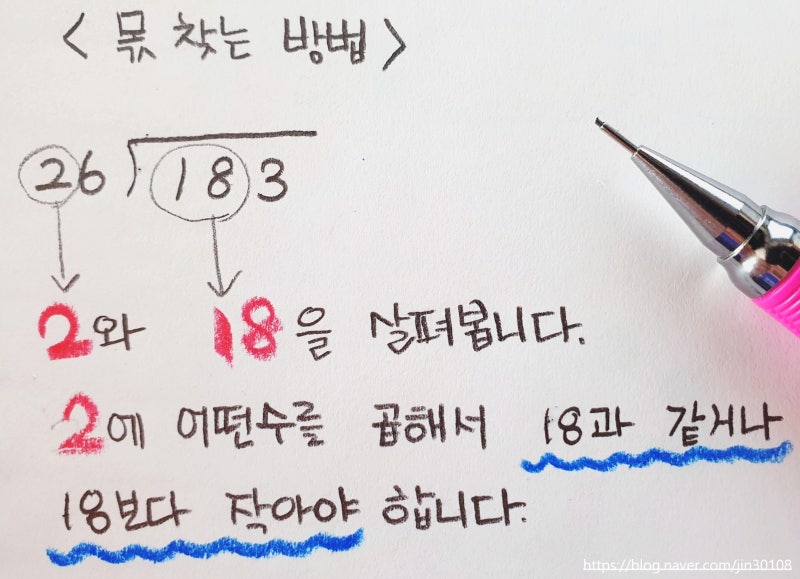 < 몫 찾는 방법 >
26)183
2와 18을 살펴봅니다.
2에 어떤수를 곱해서 18과 같거나
18보다 작아야 합니다.
https://blog.naver.com/jin30108